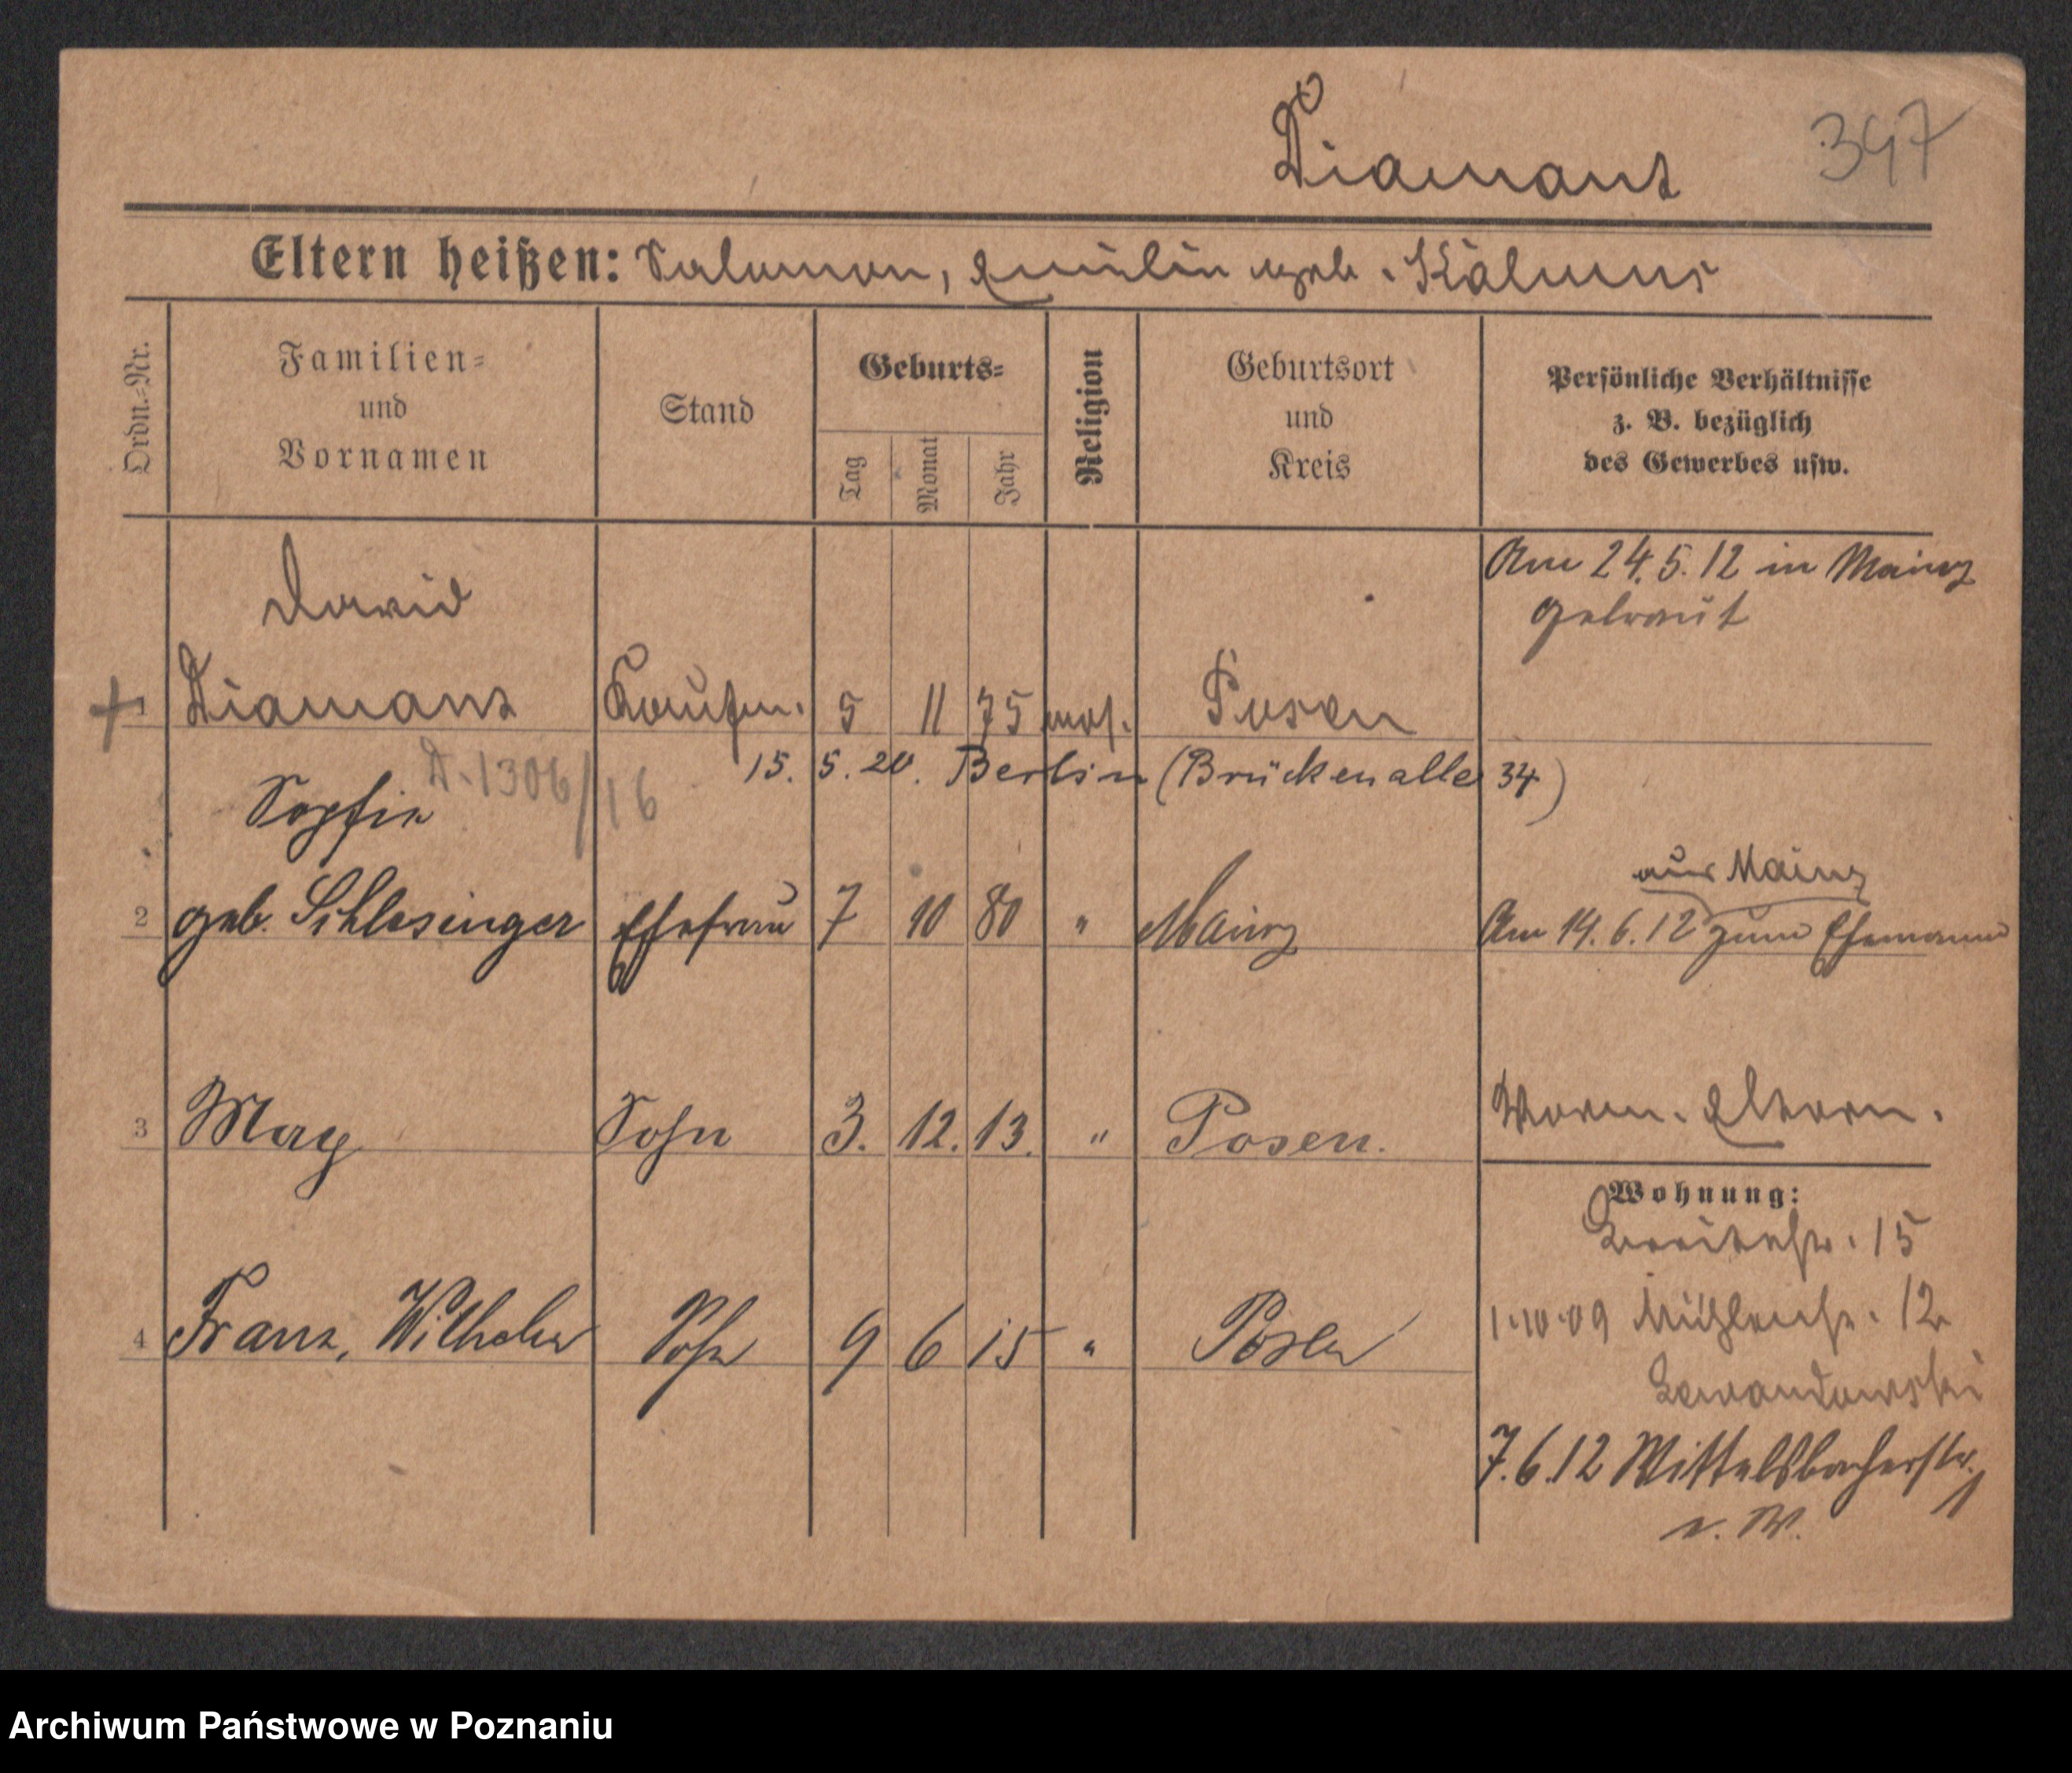 Diamant
397
Eltern heißen: Salomon, Emilie geb. Kálmus
Ordn.=Nr.
Familien=
und
Vornamen
Stand
Geburts=
Tag
Monat
Jahr
Religion
Geburtsort
und
Kreis
Persönliche Verhältnisse
z. B. bezüglich
des Gewerbes usw.
David
Am 24.5.12 in Mainz
getraut
1 Diamant Kaufm. 5 11 75 mos. Posen
D. 1306/16
15. 5. 20. Berlin (Brückenalle 34)
Sophie
aus Mainz
2 geb. Schlesinger Ehefrau 7 10 80 " Mainz Am 14.6.12 zum Ehemann
3 Max Sohn 3. 12. 13. " Posen. Vorm. Eltern.
Wohnung:
Breitestr. 15
1.10.09 Mühlenstr. 12
4 Franz, Wilhelm Sohn 9 6 15 " Posen
Lewandowski
7.6.12 Wittelsbacherstr.
e. W.
Archiwum Państwowe w Poznaniu